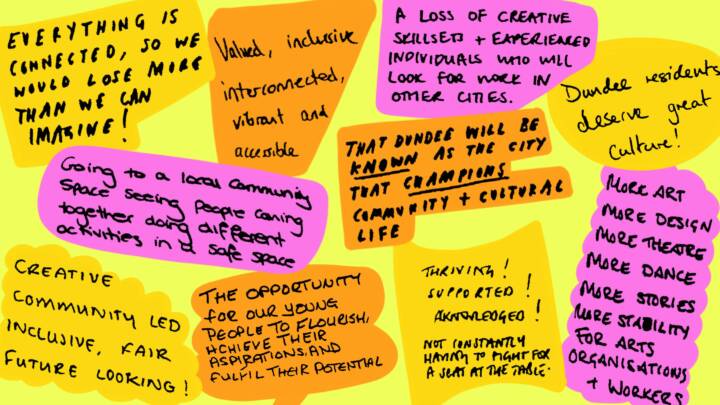 EVERYTHING IS
CONNECTED, SO WE
WOULD LOSE MORE
THAN WE CAN
IMAGINE!
Valued, inclusive
interconnected,
vibrant and
accessible
A LOSS OF CREATIVE
SKILLSETS + EXPERIENCED
INDIVIDUALS WHO WILL
LOOK FOR WORK IN
OTHER CITIES.
Dundee residents
deserve great
culture!
Going to a local community
space seeing people coming
together doing different
activities in a safe space
THAT DUNDEE WILL BE
KNOWN AS THE CITY
THAT CHAMPIONS
COMMUNITY + CULTURAL
LIFE
MORE ART
MORE DESIGN
MORE THEATRE
MORE DANCE
MORE STORIES
MORE STABILITY
FOR ARTS
ORGANISATIONS
+ WORKERS
CREATIVE
COMMUNITY LED
INCLUSIVE, FAIR
FUTURE LOOKING!
THE OPPORTUNITY
FOR OUR YOUNG
PEOPLE TO FLOURISH,
ACHIEVE THEIR
ASPIRATIONS, AND
FULFIL THEIR POTENTIAL
THRIVING!
SUPPORTED!
AKNOWLEDGED!
NOT CONSTANTLY
HAVING TO FIGHT FOR
A SEAT AT THE TABLE.